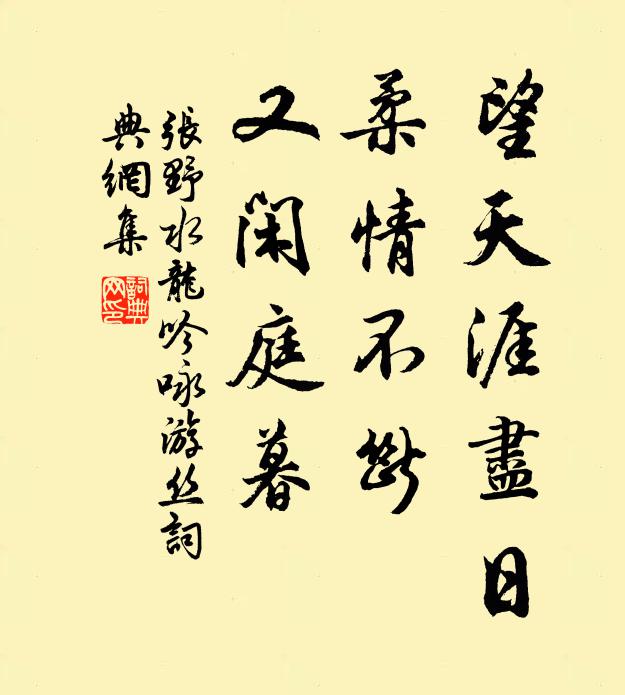 望天涯盡日
柔情不斷
又閑庭暮
張野水龍吟咏游丝詞
典網集
詞典
网印